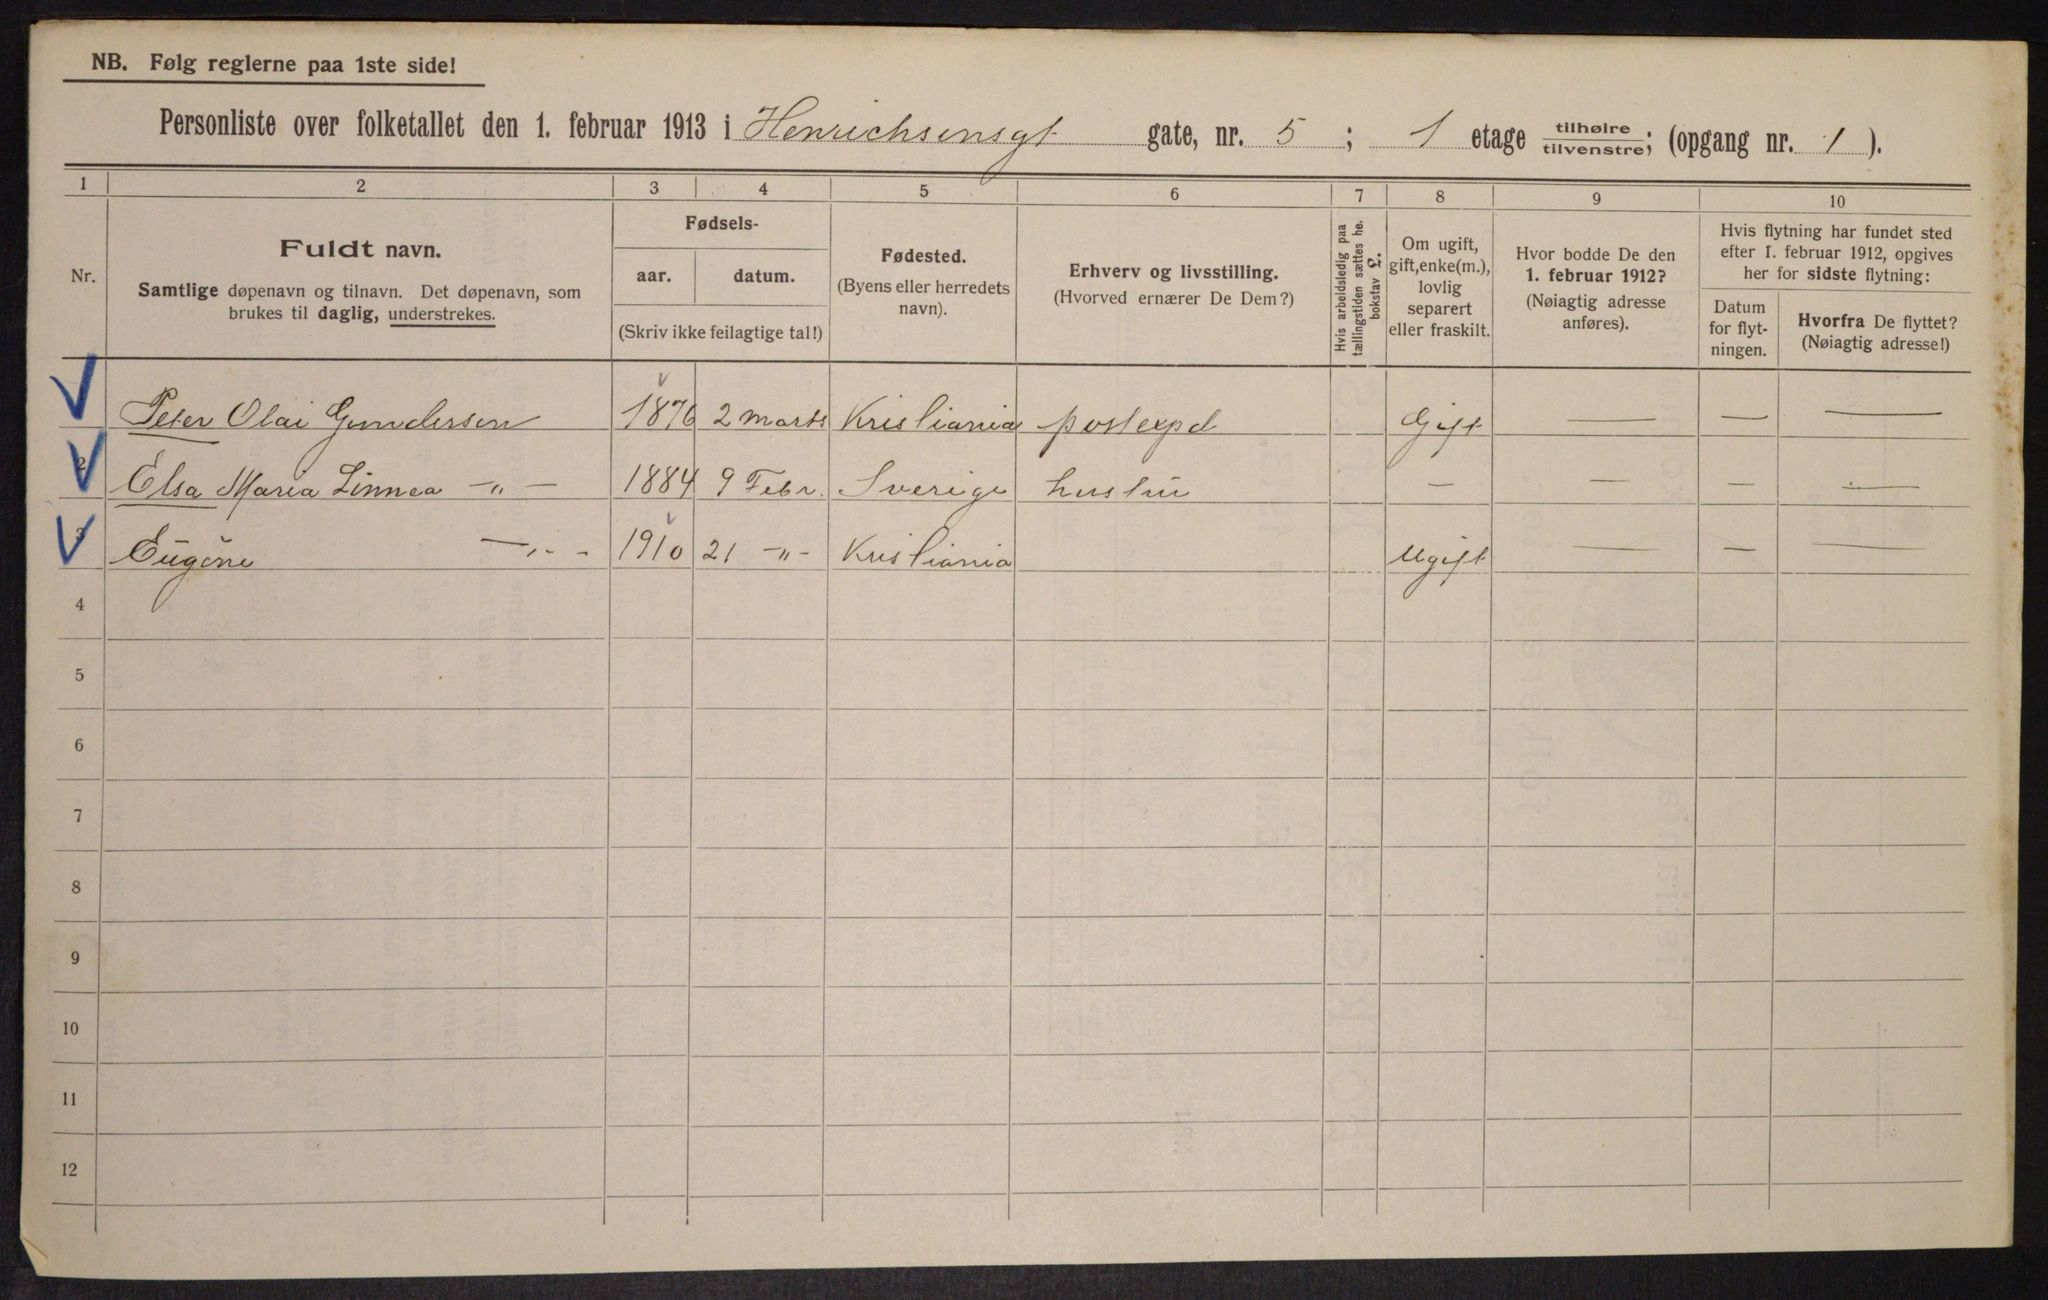 NB. Følg reglerne paa 1ste side!
Personliste over folketallet den 1. februar 1913 i Henrichsensgt gate, nr. 5 ; 1 etage tilhøire tilvenstre; (opgang nr. 1 ).
1 2 3 4 5 6 7 8 9 10
Nr.
Fuldt navn.
Samtlige døpenavn og tilnavn. Det døpenavn, som
brukes til daglig, understrekes.
Fødsels-
aar. datum.
(Skriv ikke feilagtige tal!)
Fødested.
(Byens eller herredets
navn).
Erhverv og livsstilling.
(Hvorved ernærer De Dem?)
Hvis arbeidsledig paa
tællingstiden sættes he.
bokstav L.
Om ugift,
gift, enke(m.),
lovlig
separert
eller fraskilt.
Hvor bodde De den
1. februar 1912?
(Nøiagtig adresse
anføres).
Hvis flytning har fundet sted
efter 1. februar 1912, opgives
her for sidste flytning:
Datum
for flyt-
ningen.
Hvorfra De flyttet?
(Nøiagtig adresse!)
Peter Olai Gundersen 1876 2 marts Kristiania postexpd Gift — — —
2 Elsa Maria Linnea -"- 1884 9 Febr. Sverige hustru — — — —
3 Eugéne -"- 1910 21 -"- Kristiania Ugift — — —
4
5
6
7
8
9
10
11
12